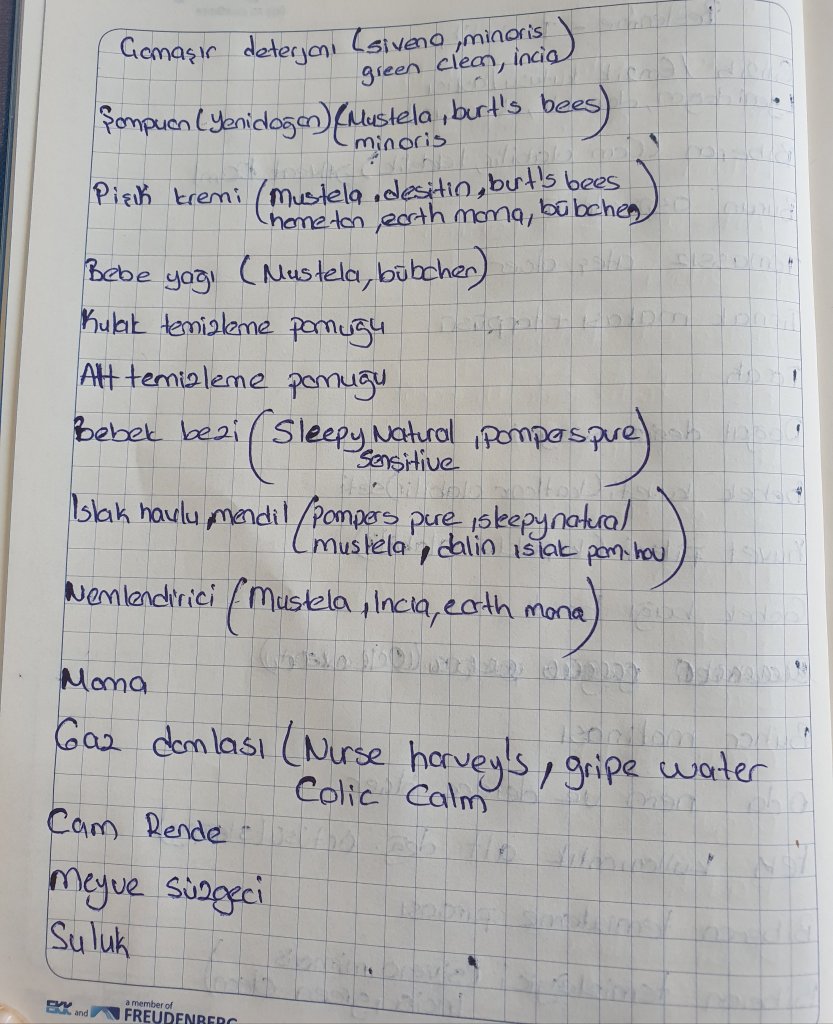 Çamaşır deterjanı (siveno, minoris
green clean, incia)
Şampuan (yenidoğan) (Mustela, burt's bees)
minoris
Pişik kremi (mustela, desitin, burt's bees
hometon, earth mama, bübchen)
Bebe yağı (Mustela, bübchen)
Kulak temizleme pamuğu
Alt temizleme pamuğu
Bebek bezi (Sleepy Natural, pampers pure)
Sensitive
Islak havlu, mendil (pampers pure, sleepy natural
mustela, dalin ıslak pam. hav)
Nemlendirici (Mustela, Incia, earth mama)
Mama
Gaz damlası (Nurse harvey's, gripe water
Colic Calm
Cam Rende
Meyve süzgeci
Suluk
and a member of
FREUDENBERG